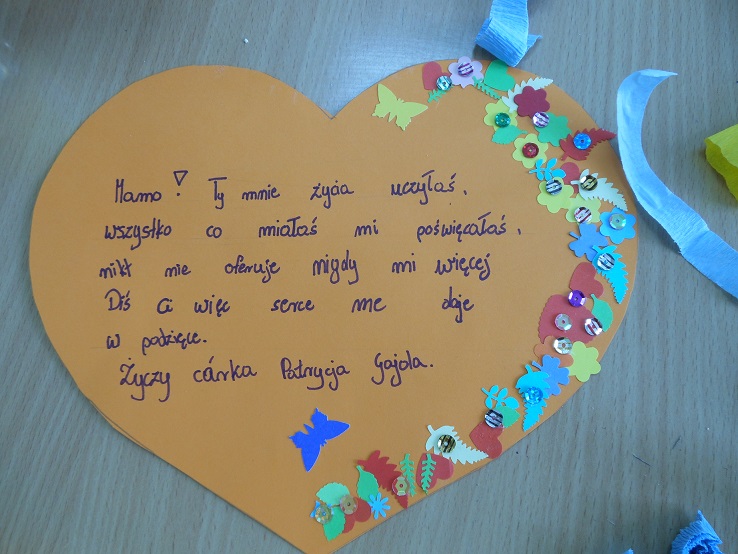 Mamo! Ty mnie życia uczyłaś,
wszystko co miałaś mi poświęcałaś,
nikt nie oferuje nigdy mi więcej
Diś Ci więc serce me daje
w podzięce.
Życzy cárka Patrycja Gajda.